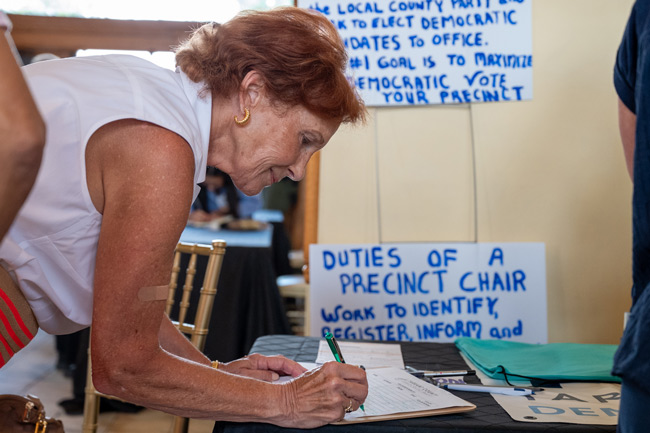 the LOCAL COUNTY PARTY and
TO ELECT DEMOCRATIC
DATES TO OFFICE.
#1 GOAL IS TO MAXIMIZE
DEMOCRATIC VOTE
YOUR PRECINCT
DUTIES OF A
PRECINCT CHAIR
WORK TO IDENTIFY,
REGISTER, INFORM and